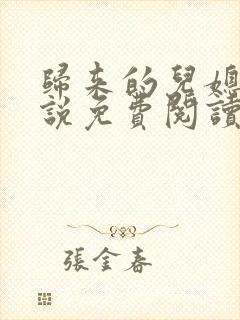 歸來的兒媳
說免費閱讀
張金春